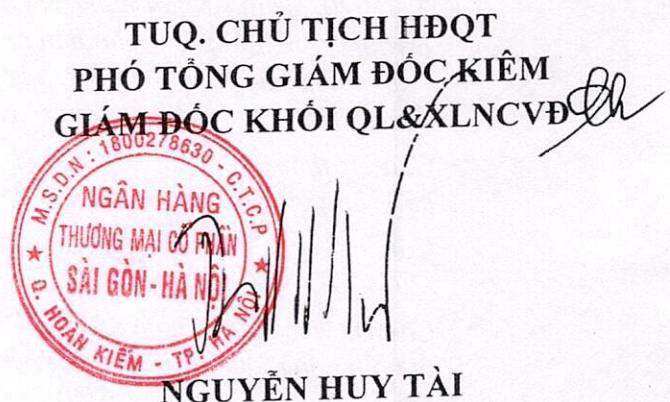 TUQ. CHỦ TỊCH HĐQT
PHÓ TỔNG GIÁM ĐỐC KIÊM
GIÁM ĐỐC KHỐI QL&XLNCVĐ
M.S.D.N: 1800278630 - C.T.C.P
NGÂN HÀNG
THƯƠNG MẠI CỔ PHẦN
SÀI GÒN - HÀ NỘI
Q. HOÀN KIẾM - TP. HÀ NỘI
NGUYỄN HUY TÀI